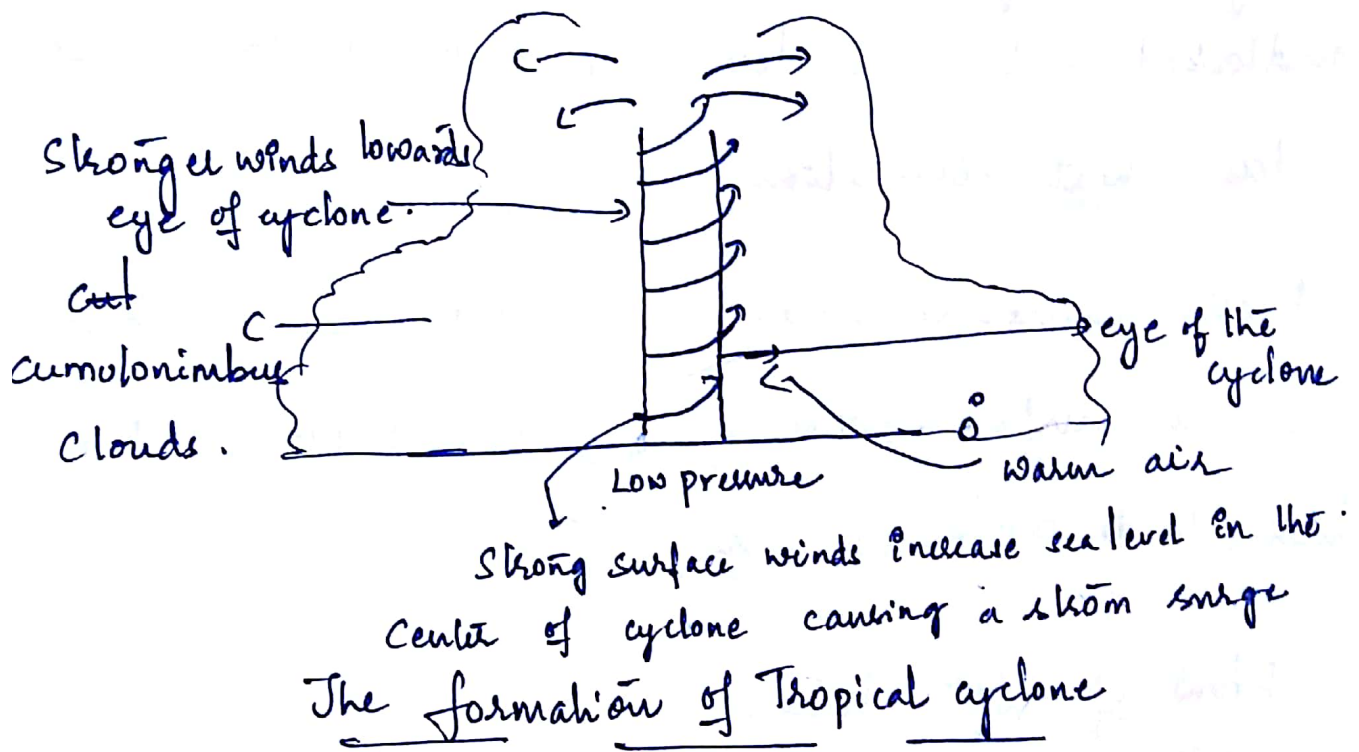 Stronger winds towards
eye of cyclone.
cumulonimbus
Clouds.
eye of the
cyclone
Low pressure
warm air
Strong surface winds increase sea level in the
Center of cyclone causing a storm surge
The formation of Tropical cyclone